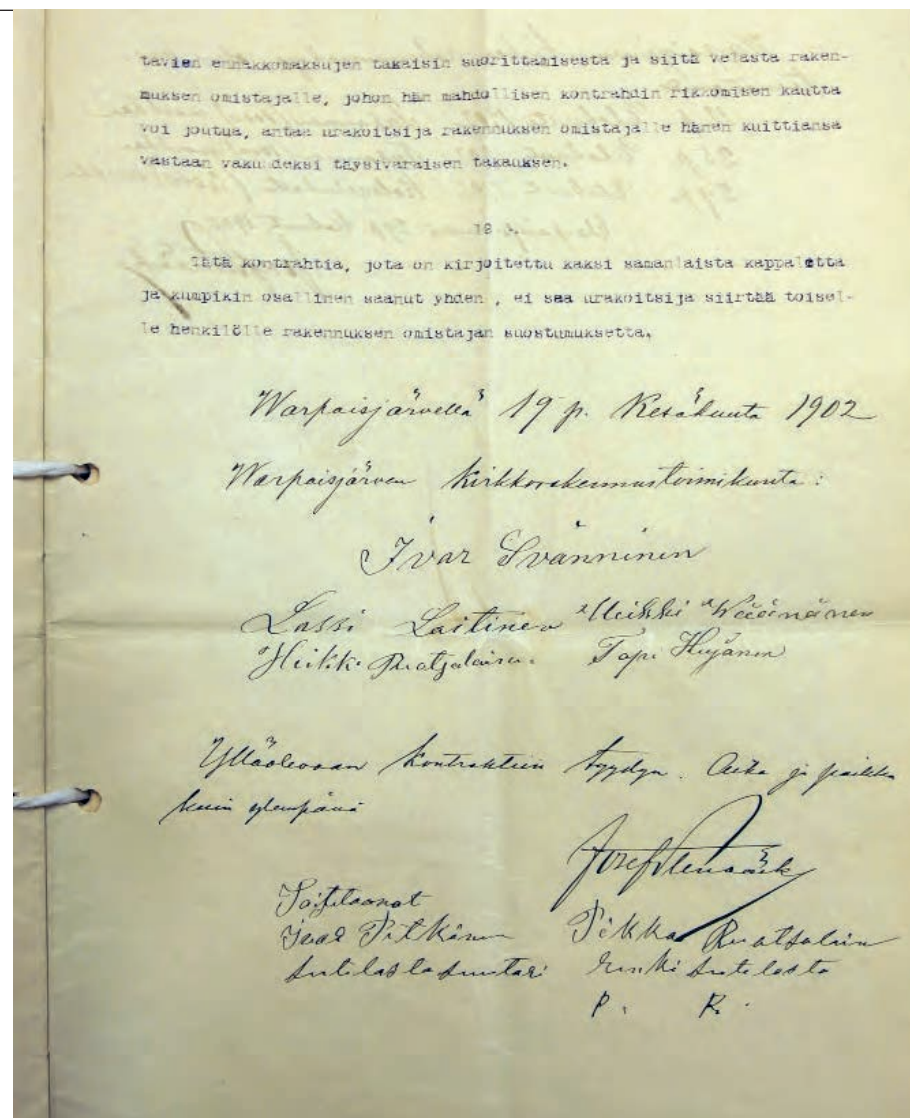 tavien ennakkomaksujen takaisin suorittamisesta ja siitä velasta raken-
nuksen omistajalle, johon hän mahdollisen kontrahdin rikkomisen kautta
voi joutua, antaa urakoitsija rakennuksen omistajalle hänen kuittiansa
vastaan vakuudeksi täysivaraisen takauksen.
19
Tätä kontrahtia, jota on kirjoitettu kaksi samanlaista kappaletta
ja kumpikin osallinen saanut yhden , ei saa urakoitsija siirtää toisel-
le henkilölle rakennuksen omistajan suostumuksetta.
Warpaisjärvellä 19 p. Kesäkuuta 1902
Warpaisjärven Kirkkorakennustoimikunta :
Ivar Svänninen
Lassi Laitinen Heikki Wäänänen
Heikki Ruotsalainen Tapi Hujanen
Ylläolevaan kontrahtiin tyydyn. Aika ja paikka
kuin ylempänä
Josef
Todistavat
Pitkänen Pekka Ruotsalain
P. R.